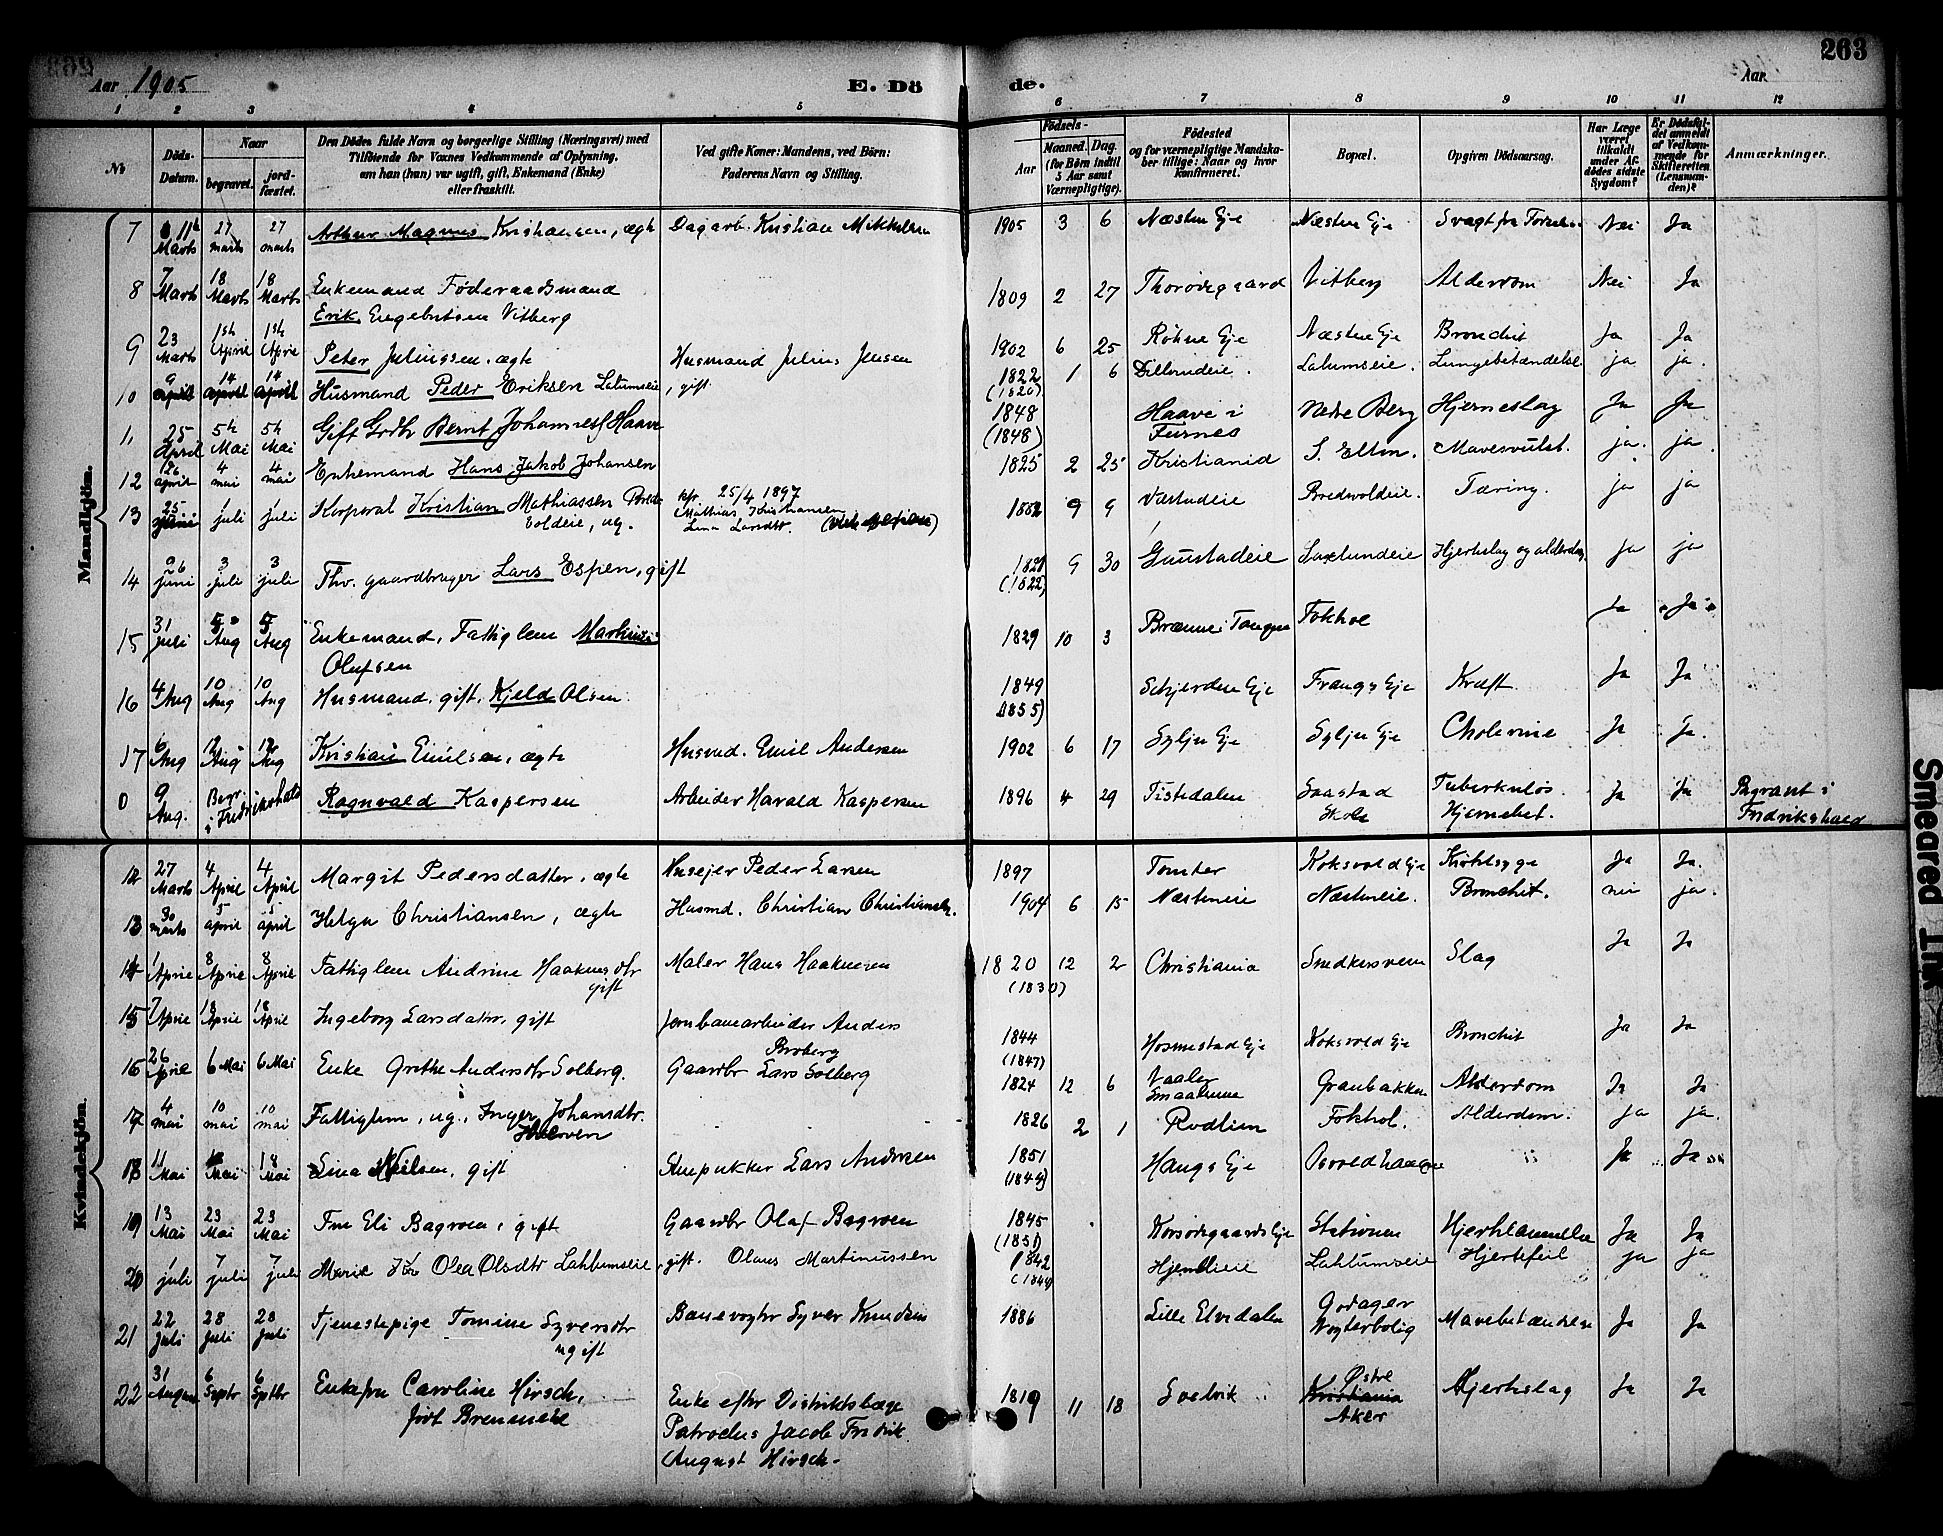 263
Aar 1905
E. Dö
de.
Aar
1 2 3 4 5 6 7 8 9 10 11 12
No
Döds-Datum.
Naar
begravet.
jord-fæstet.
Den Dödes fulde Navn og borgerlige Stilling (Næringsvei) med
Tilföiende for Voxnes Vedkommende af Oplysning,
om han (hun) var ugift, gift, Enkemand (Enke)
eller fraskilt.
Ved gifte Koner: Mandens, ved Börn:
Faderens Navn og Stilling.
Födsels-
Aar
Maaned. Dag.
(for Börn indtil
5 Aar samt
Værnepligtige).
Födested
og for værnepligtige Mandska-
ber tillige: Naar og hvor
konfirmeret.
Bopæl.
Opgiven Dödsaarsag.
Har Læge
været
tilkaldt
under Af-
dödes sidste
Sygdom?
Er Dödsfal-
det anmeldt
af Vedkom-
mende for
Skifteretten
(Lensman-
den)?
Anmærkninger.
Mandkjön.
7 11te Marts 27 marts 27 marts Arthur Magnus Kristiansen, ægte Dagarb. Kristian Mikkelsen 1905 3 6 Næsten Eje Næsten Eje Svagt fra Nei Ja
8 7 Marts 18 Marts 18 Marts Enkemand Föderaadsmand
Erik Engebretsen Vitberg 1809 2 27 Thorödegaard Vitberg Alderdom Nei Ja
9 23 Marts 1ste April 1ste April Peter Juliussen, ægte Husmand Julius Jensen 1902 6 25 Röhne Eje Næsten Eje Bronchit Ja Ja
10 9 april 14 april 14 april Husmand Peder Eriksen Lalumseie, gift 1822 (1820) 1 6 Dillerudeie. Lalumseie. Lungebetændelse ja ja.
11 25 April 5te Mai 5te Mai Gift Grdbr Bernt Johannesf Haave 1848 (1848) Haave i Furnes Nedre Berg Hjerneslag Ja Ja
12 26 april 4 mai 4 mai Enkemand Hans Jakob Johansen 1825 2 25 Kristianid S. Elton. Mavesvulst. ja. ja.
13 25 juni 1 juli 1 juli Korporal Kristian Mathiassen Bred-
voldeie, ug. kfr. 25/4 1897
Mathias Kristiansen
Lina Larsdtr. 1882 9 9 Væstadeie Bredvoldeie. Tæring. ja ja
14 26 juni 3 juli 3 juli Thv. gaardbruger Lars Espsen, gift 1820 (1822) 9 30 Gaustadeie Saxlundeie Hjerteslag og alderdom ja ja
15 31 juli 5 Aug 5 Aug Enkemand, Fattiglem Martinus
Olufsen 1829 10 3 Brænne i Tangen Fokhol Ja Ja
16 4 Aug 10 Aug 10 Aug Husmand, gift, Kjeld Olsen 1849 (1855) Schjerden Eje Frangs Eje Kræft Ja Ja
17 6 Aug 12 Aug 12 Aug Kristian Emilsen, ægte Husmd. Emil Andersen 1902 6 17 Sylju Eje Sylju Eje Cholerine Ja Ja.
0 9 Aug. Begr. i Fredrikshald Ragnvald Kaspersen Arbeider Harald Kaspersen 1896 4 29 Tistedalen Saastad Skole Tuberkulös Hjernebet. Ja Ja Begravet i
Fredrikshald
Kvindekjön.
12 27 Marts 4 April 4 April Margit Pedersdatter, ægte Husejer Peder Larsen 1897 Tomter Koksvold Eje Kirtelsyge Ja Ja.
13 30 marts 5 april 5 april Helga Christiansen, ægte Husmd. Christian Christiansen. 1904 6 15 Næsteneie Næsteneie. Bronchit. nei ja.
14 1 April 8 April 8 April Fattiglem Andrine Haakensdtr
gift Maler Hans Haakensen 1820 (1830) 12 2 Christiania Snedkersveen Slag Ja Ja
15 7 April 18 April 18 April Ingeborg Larsdatter, gift Jernbanearbeider Anders
Broberg 1844 (1847) Hosmestad Eje Koksvold Eje Bronchit Ja Ja
16 26 April 6 Mai 6 Mai Enke Grethe Andersdtr Solberg. Gaardbr Lars Solberg 1824 12 6 Vaaler Smaalenene Granbakken Alderdom Ja Ja
17 4 mai 10 mai 10 mai Fattiglem, ug., Inger Johansdtr. 1826 2 1 Rudlien Fokhol. Alderdom. ja ja.
18 11 Mai 18 Mai 18 Mai Lina Nilsen, gift Stenpukker Lars Andersen 1851 (1844) Haugs Eje Osvoldhaugen Ja Ja
19 13 Mai 23 Mai 23 Mai Fru Eli Bagroen, gift Gaardbr Olaf Bagroen 1845 (1851) Korsödegaards Eje Stationen Hjertelammelse Ja Ja
20 1 juli 7 juli 7 juli Marie Olea Olsdtr Lahlumseie, gift. Olaus Martinussen 1842 (1844) Hjemlieie Lahlumseie Hjertefeil ja ja
21 22 Juli 28 Juli 28 Juli Tjenestepige Tomine Syversdtr
ugift Banevogter Syver Knudsen 1886 Lille Elvedalen Godager Vogterbolig Mavebetændelse Ja Ja
22 31 August 6 Septbr 6 Septbr Enkefru Caroline Hirsch,
födt Bremmere Enke efter Distriktslæge
Patroclus Jacob Fredrik
August Hirsch. 1819 11 18 Svelvik Kristiania Östre Aker Hjerteslag Ja Ja
Smeared Ink